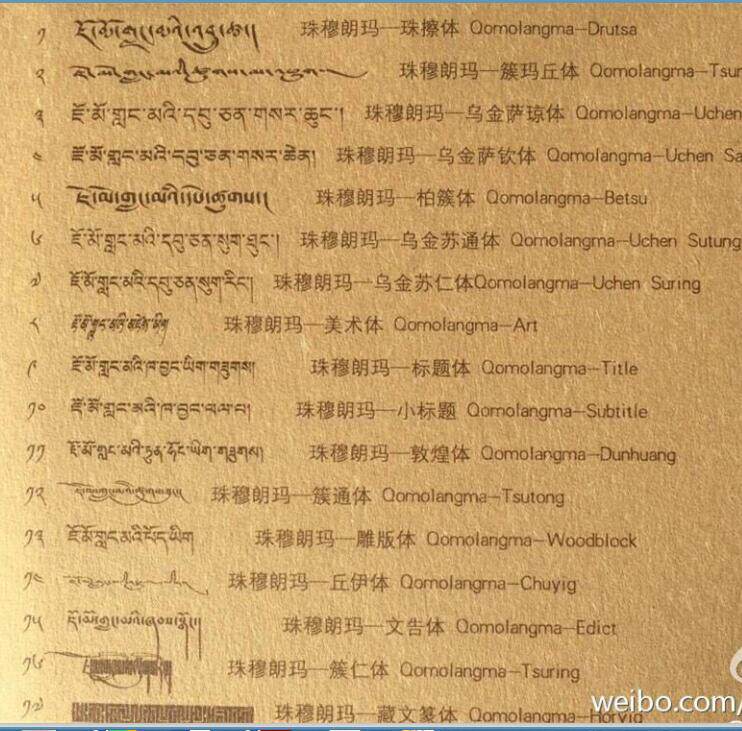 ༡ ཇོ་མོ་གླང་མའི་འབྲུ་ཚ། 珠穆朗玛—珠擦体 Qomolangma—Drutsa
༢ 珠穆朗玛—簇玛丘体
༣ ཇོ་མོ་གླང་མའི་དབུ་ཅན་གསར་ཆུང་། 珠穆朗玛—乌金萨琼体 Qomolangma—Uchen
༤ ཇོ་མོ་གླང་མའི་དབུ་ཅན་གསར་ཆེན། 珠穆朗玛—乌金萨钦体 Qomolangma—Uchen Sa
༥ 珠穆朗玛—柏簇体 Qomolangma—Betsu
༦ ཇོ་མོ་གླང་མའི་དབུ་ཅན་སུག་ཐུང་། 珠穆朗玛—乌金苏通体 Qomolangma—Uchen Sutung
༧ ཇོ་མོ་གླང་མའི་དབུ་ཅན་སུག་རིང་། 珠穆朗玛—乌金苏仁体Qomolangma—Uchen Suring
༨ 珠穆朗玛—美术体 Qomolangma—Art
༩ ཇོ་མོ་གླང་མའི་ཁ་བྱང་ཡིག་གཟུགས། 珠穆朗玛—标题体 Qomolangma—Title
༡༠ 珠穆朗玛—小标题 Qomolangma—Subtitle
༡༡ ཇོ་མོ་གླང་མའི་ཏུན་ཧོང་ཡིག་གཟུགས། 珠穆朗玛—敦煌体 Qomolangma—Dunhuang
༡༢ 珠穆朗玛—簇通体 Qomolangma—Tsutong
༡༣ ཇོ་མོ་གླང་མའི་པོད་ཡིག 珠穆朗玛—雕版体 Qomolangma—Woodblock
༡༤ 珠穆朗玛—丘伊体 Qomolangma—Chuyig
༡༥ 珠穆朗玛—文告体 Qomolangma—Edict
༡༦ 珠穆朗玛—簇仁体 Qomolangma—Tsuring
༡༧ 珠穆朗玛—藏文篆体 Qomolangma—Horyig
weibo.com/